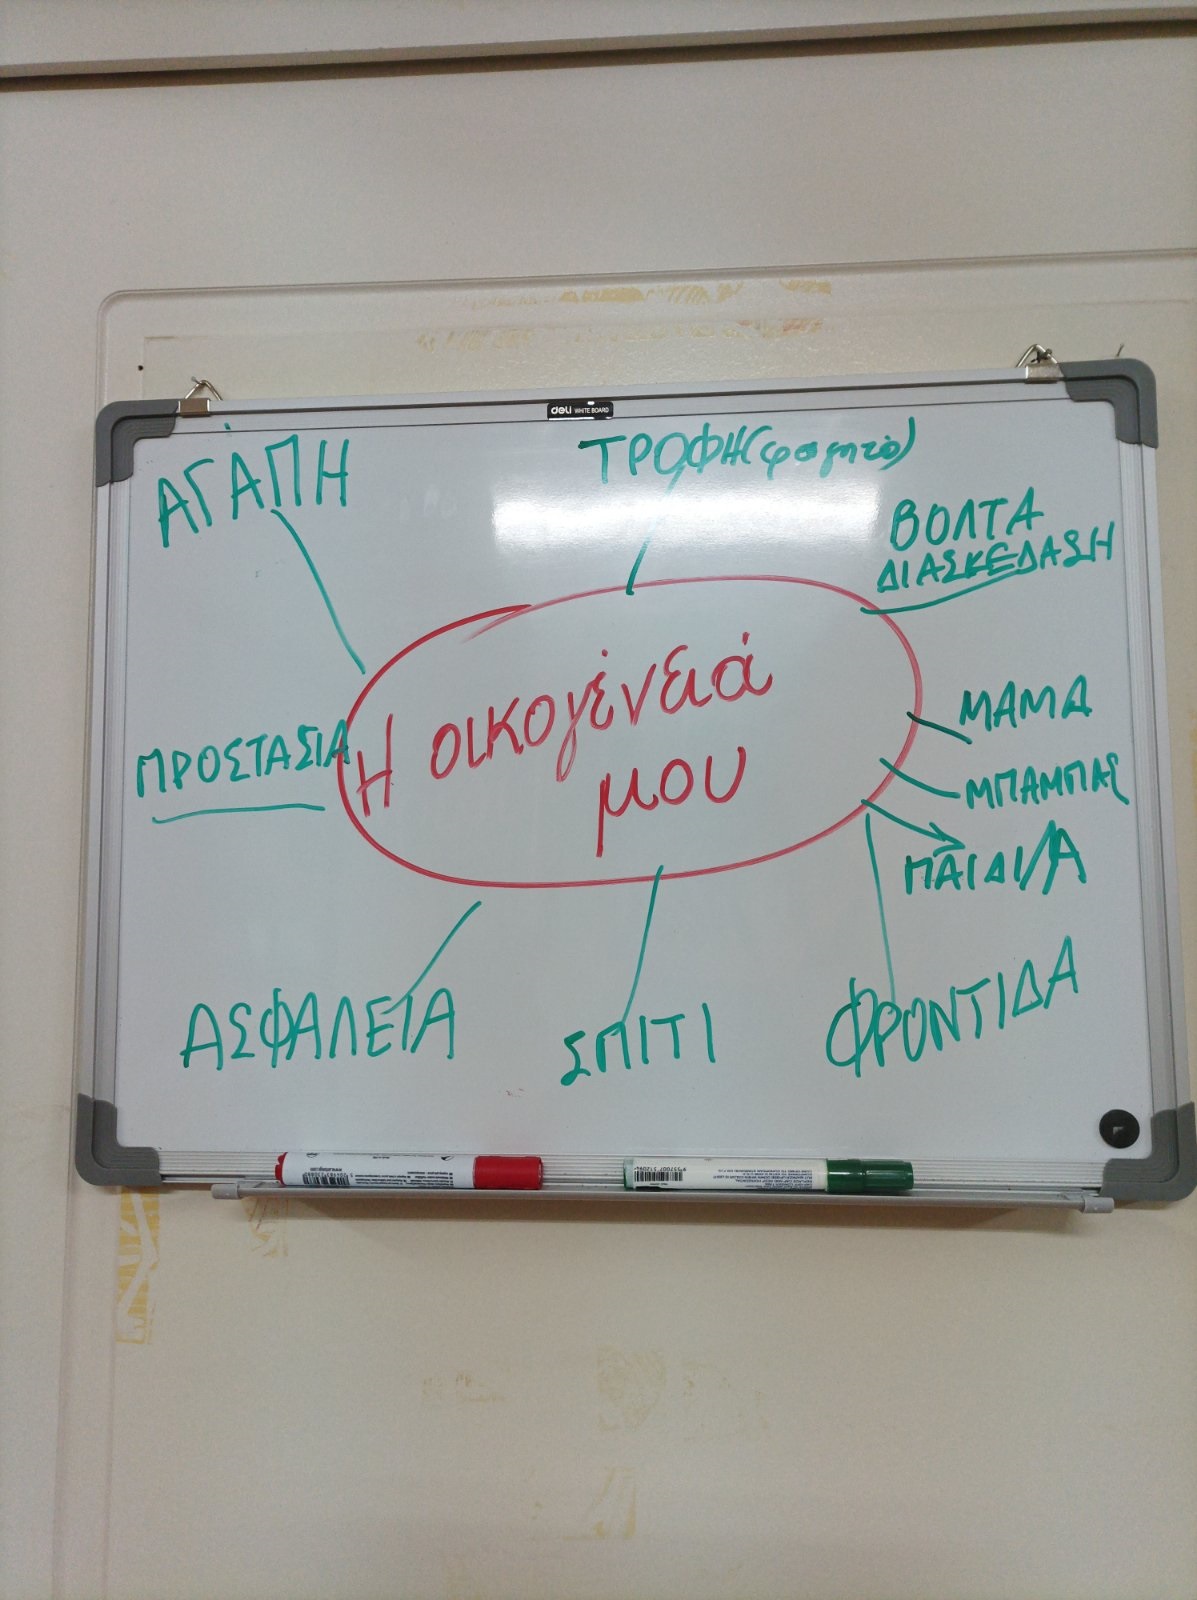 deli WHITE BOARD
ΑΓΆΠΗ
ΤΡΟΦΗ (φαγητό)
ΒΟΛΤΑ
ΔΙΑΣΚΕΔΑΣΗ
Η οικογένειά
μου
ΠΡΟΣΤΑΣΙΑ
ΜΑΜΑ
ΜΠΑΜΠΑΣ
ΠΑΙΔΙ/Α
ΑΣΦΑΛΕΙΑ
ΣΠΙΤΙ
ΦΡΟΝΤΙΔΑ